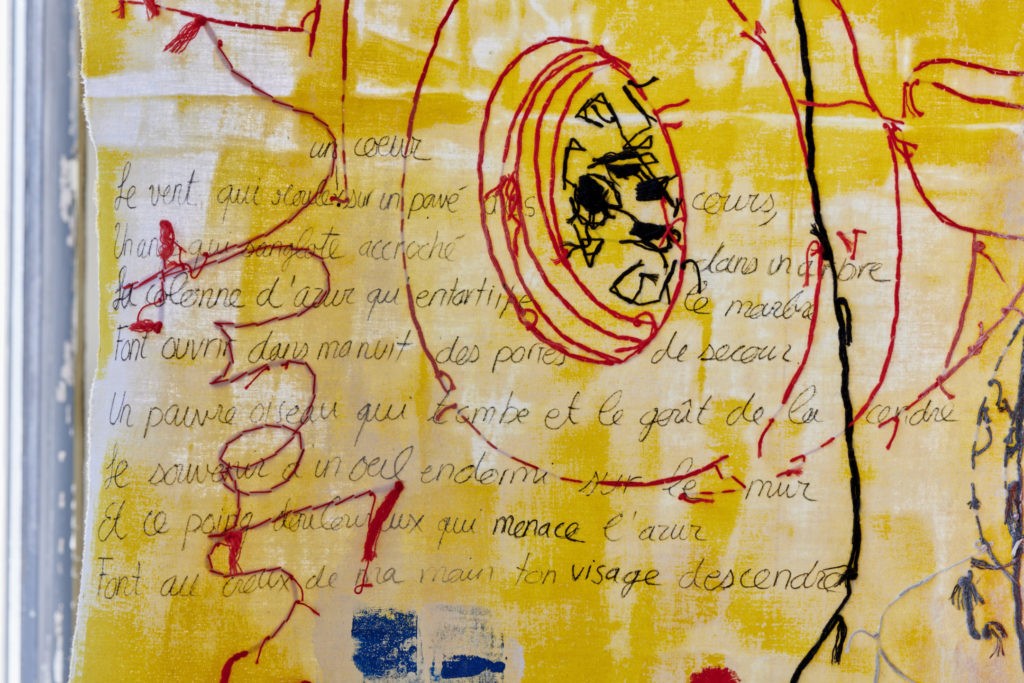 un coeur
Le vent qui scoule sur un pavé dans cours,
Un an qui sanglote accroché dans un arbre
La colonne d'azur qu entortille le marbre
Font ouvrir dans ma nuit des portes de secour
Un pauvre oiseau qui tombe et le goût de la cendre
Le souvenir d'un oeil endormi sur le mur
Et ce poing douloureux qui menace l'azur
Font au creux de ma main ton visage descendre